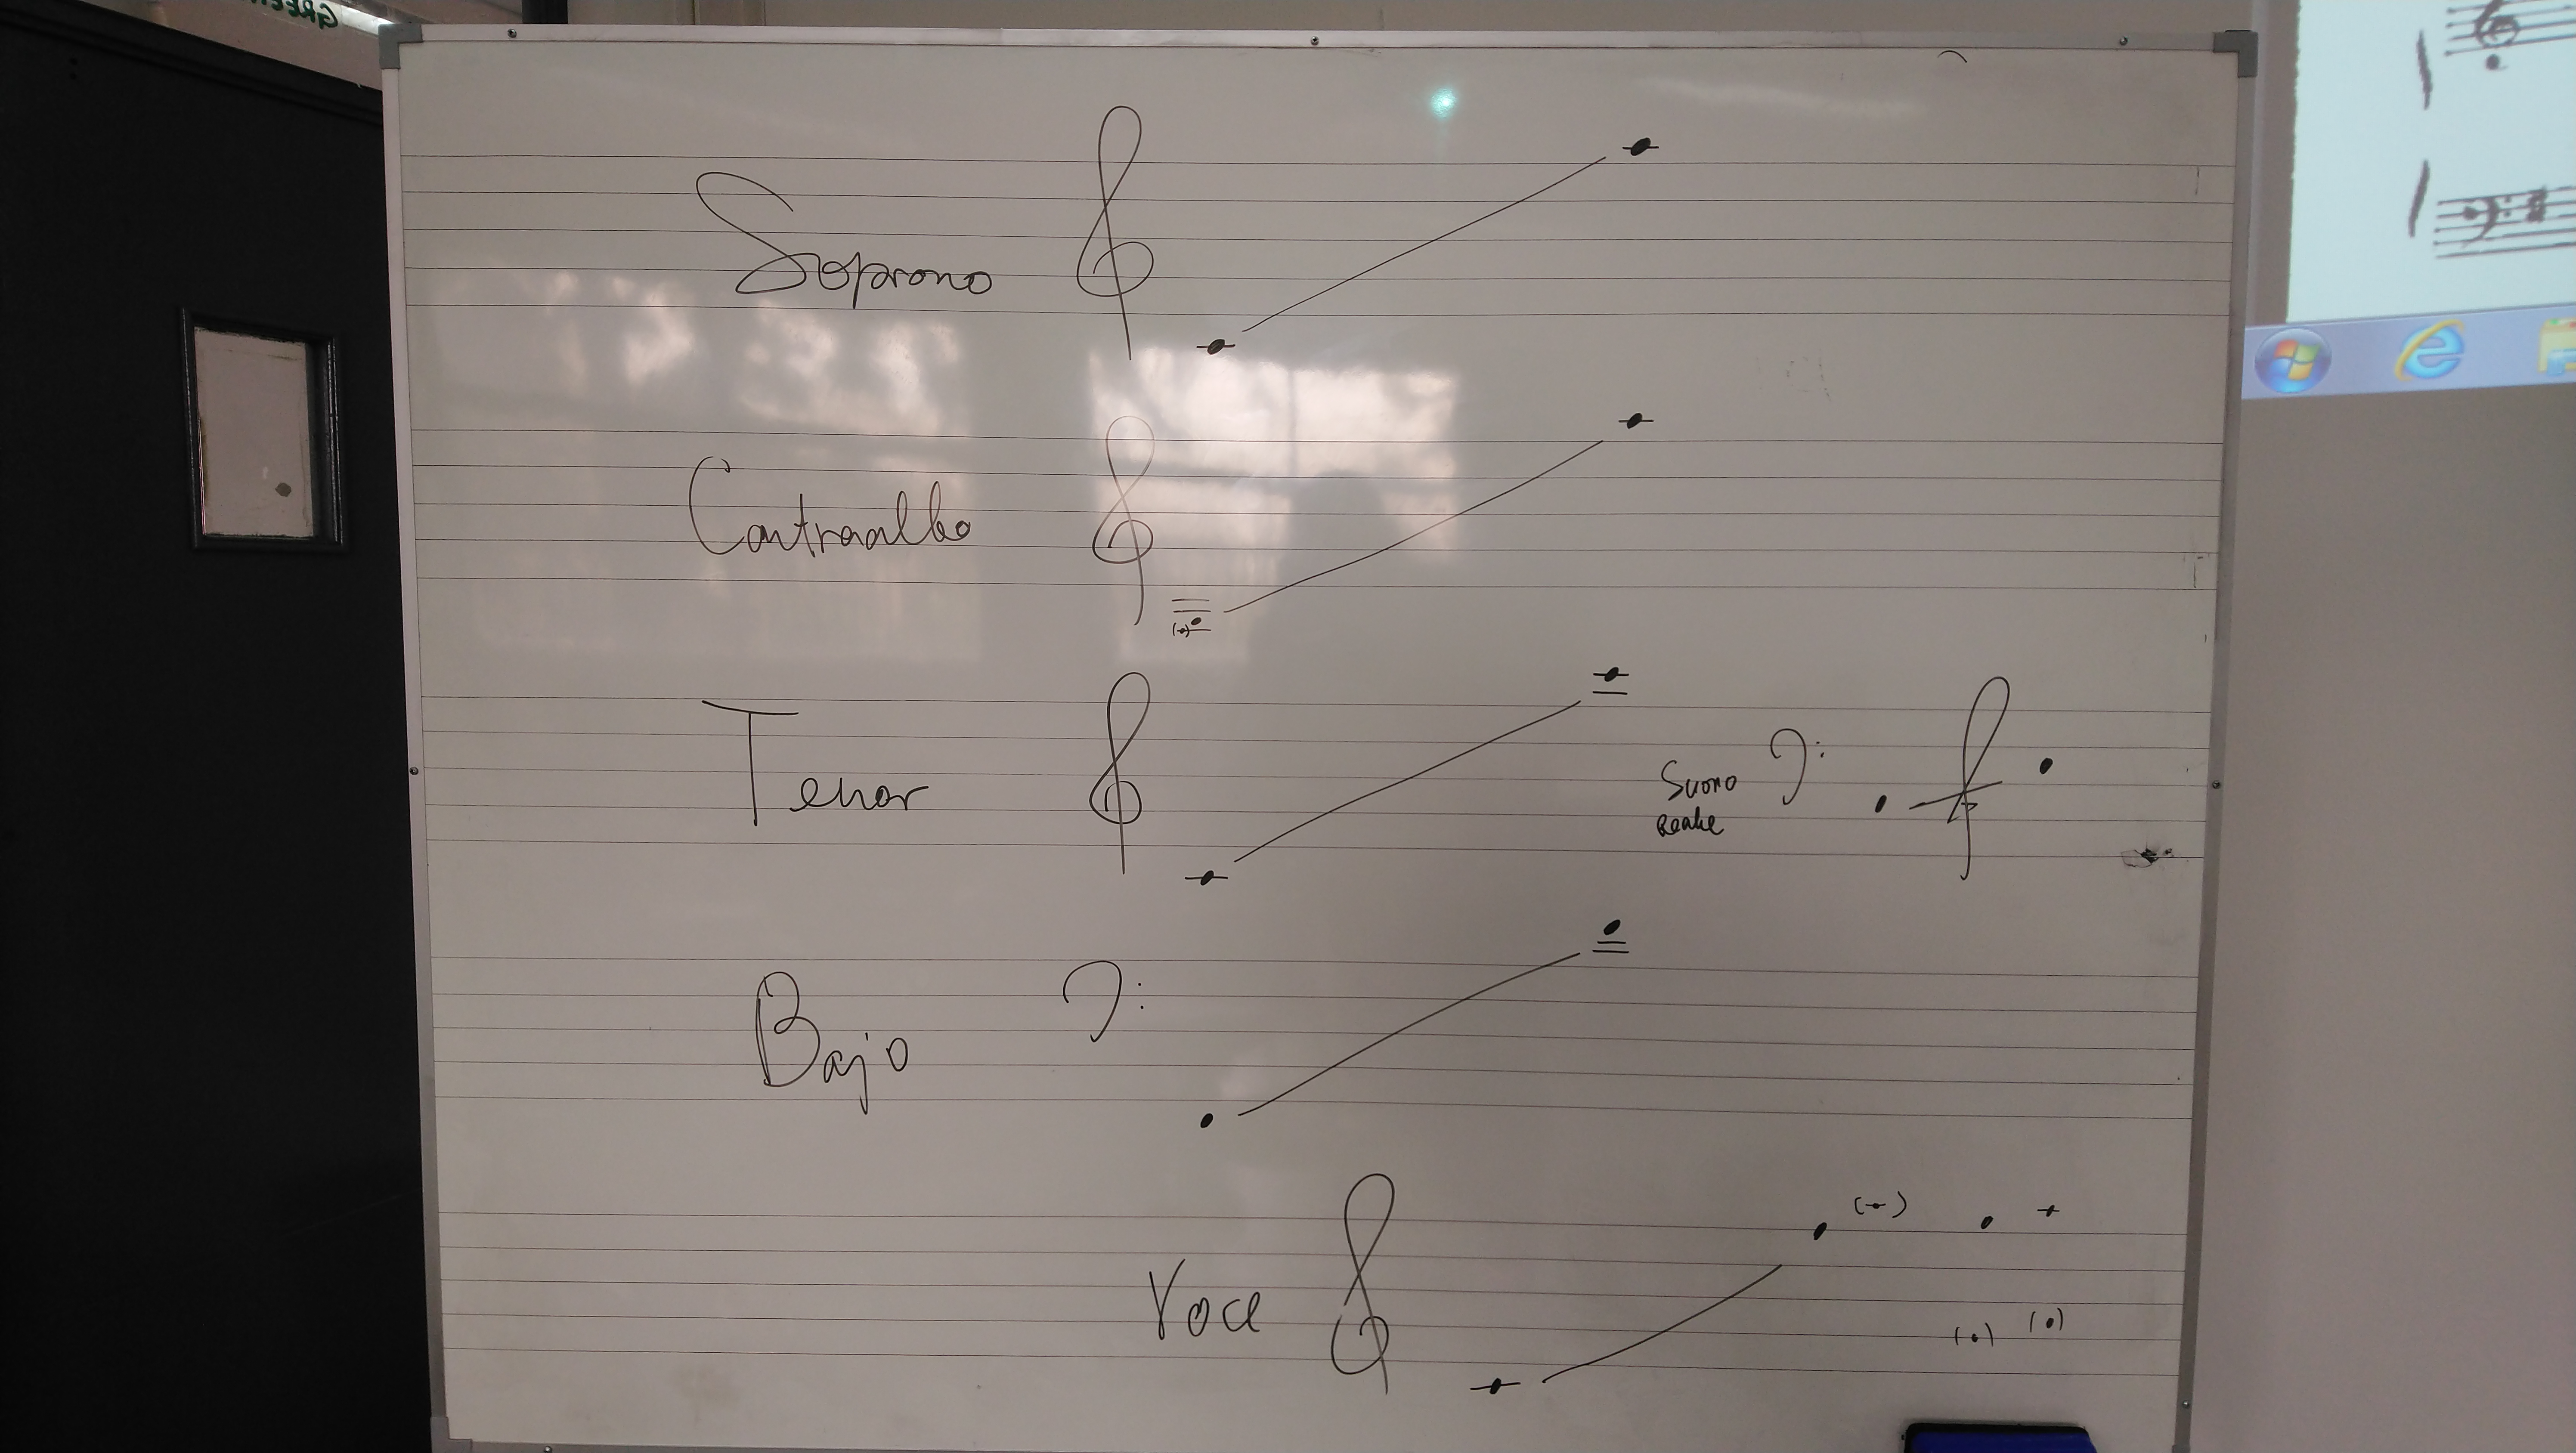 GREEN
Soprono
Contraalto
Tenor
Suono
Reale
Bajo
Voce